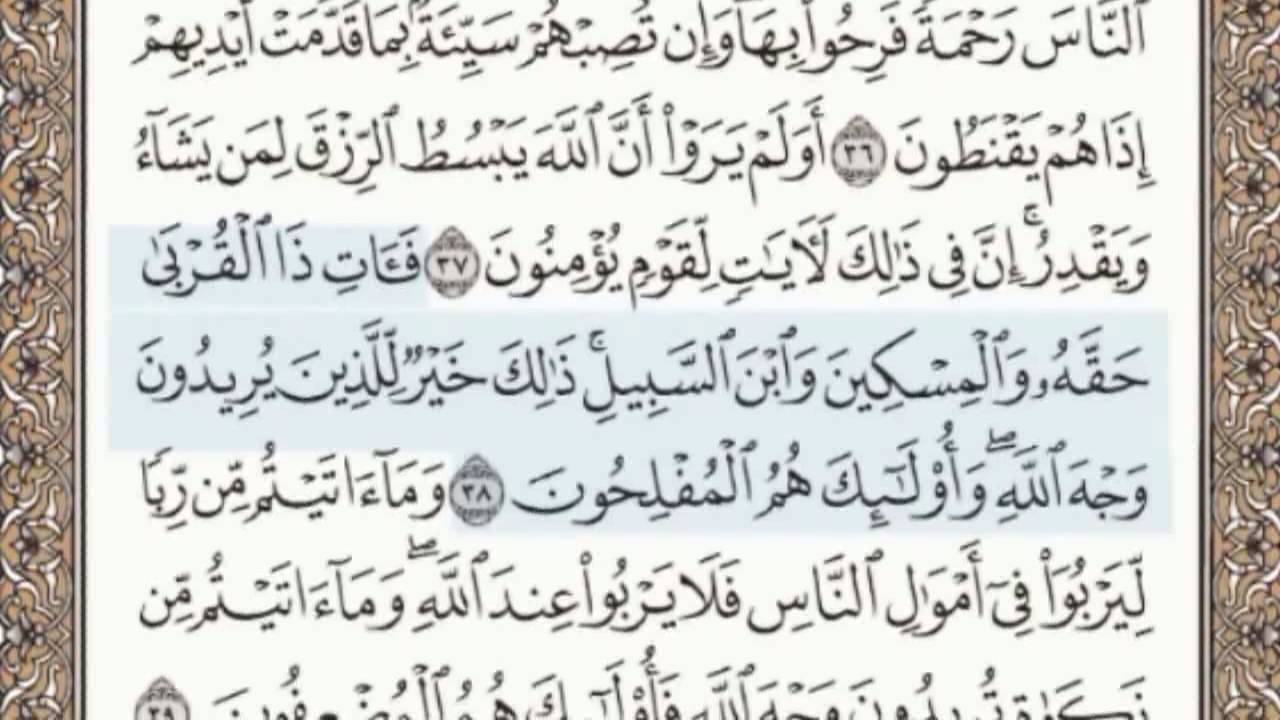 ٱلنَّاسَ رَحْمَةً فَرِحُوا۟ بِهَا وَإِن تُصِبْهُمْ سَيِّئَةٌۢ بِمَا قَدَّمَتْ أَيْدِيهِمْ
إِذَا هُمْ يَقْنَطُونَ ٣٦ أَوَلَمْ يَرَوْا۟ أَنَّ ٱللَّهَ يَبْسُطُ ٱلرِّزْقَ لِمَن يَشَآءُ
وَيَقْدِرُ ۚ إِنَّ فِى ذَٰلِكَ لَـَٔايَـٰتٍ لِّقَوْمٍ يُؤْمِنُونَ ٣٧ فَـَٔاتِ ذَا ٱلْقُرْبَىٰ
حَقَّهُۥ وَٱلْمِسْكِينَ وَٱبْنَ ٱلسَّبِيلِ ۚ ذَٰلِكَ خَيْرٌ لِّلَّذِينَ يُرِيدُونَ
وَجْهَ ٱللَّهِ ۖ وَأُو۟لَـٰٓئِكَ هُمُ ٱلْمُفْلِحُونَ ٣٨ وَمَآ ءَاتَيْتُم مِّن رِّبًا
لِّيَرْبُوَا۟ فِىٓ أَمْوَٰلِ ٱلنَّاسِ فَلَا يَرْبُوا۟ عِندَ ٱللَّهِ ۖ وَمَآ ءَاتَيْتُم مِّن
زَكَوٰةٍ تُرِيدُونَ وَجْهَ ٱللَّهِ فَأُو۟لَـٰٓئِكَ هُمُ ٱلْمُضْعِفُونَ ٣٩